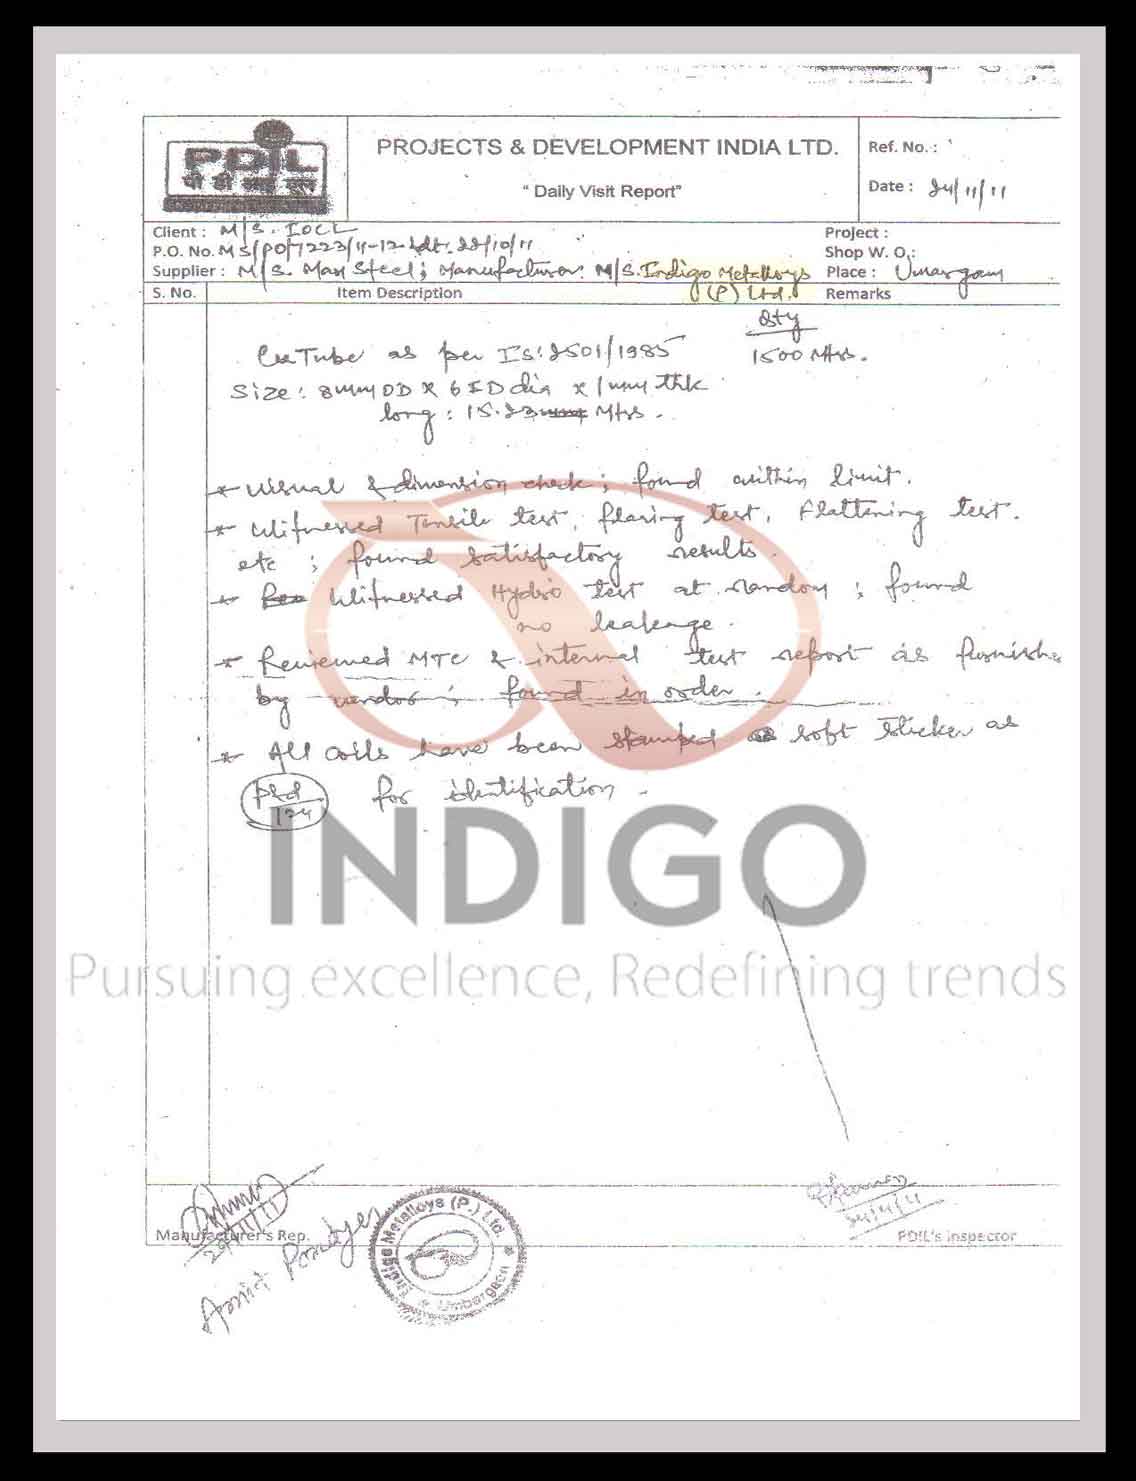 PDIL
पी डी आई एल
PROJECTS & DEVELOPMENT INDIA LTD.
“ Daily Visit Report”
Ref. No. :
Date : 24/11/11
Client : M/S. IOCL
P.O. No. MS/PO/7223/11-12 dt. 22/10/11
Supplier : M/S. Man Steel; Manufacturer: M/S. Indigo Metalloys
(P) Ltd.
Project :
Shop W. O.:
Place : Umargam
S. No.
Item Description
Remarks
Qty
Cu Tube as per IS:2501/1985 1500 Mtrs.
Size: 8mm OD x 6 ID dia x 1mm thk
long: 15.23 Mtrs.
* Visual & dimension check; found within limit.
* Witnessed Tensile test, flaring test, Flattening test.
etc ; found satisfactory results.
* Witnessed Hydro test at random ; found
no leakage.
* Reviewed MTC & internal test report as furnishe
by vendor ; found in order.
* All coils have been stamped soft sticker as
for identification.
INDIGO
Pursuing excellence, Redefining trends
24/11/11
Manufacturer's Rep.
PDIL's Inspector
Indigo Metalloys (P.) Ltd. * Umbergaon *